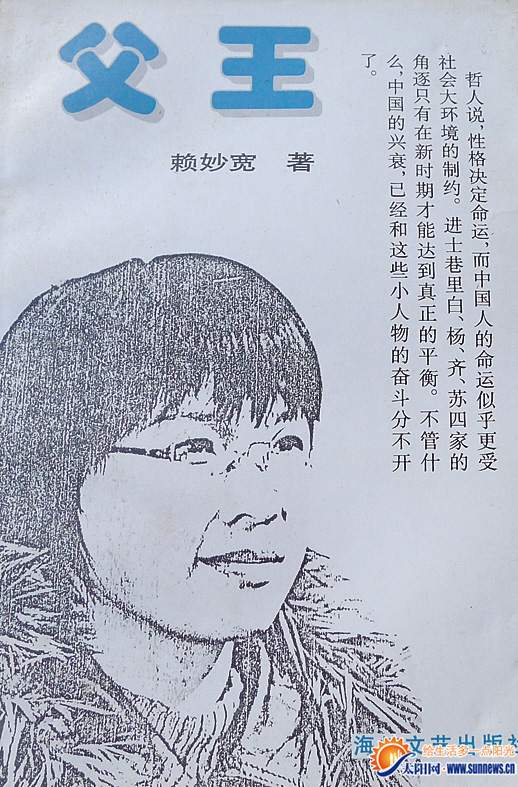 父王
赖妙宽 著
哲人说，性格决定命运，而中国人的命运似乎更受
社会大环境的制约。进士巷里白、杨、齐、苏四家的
角逐只有在新时期才能达到真正的平衡。不管什
么，中国的兴衰，已经和这些小人物的奋斗分不开
了。
海 文艺出版社
给生活多一点阳光
www.sunnews.cn